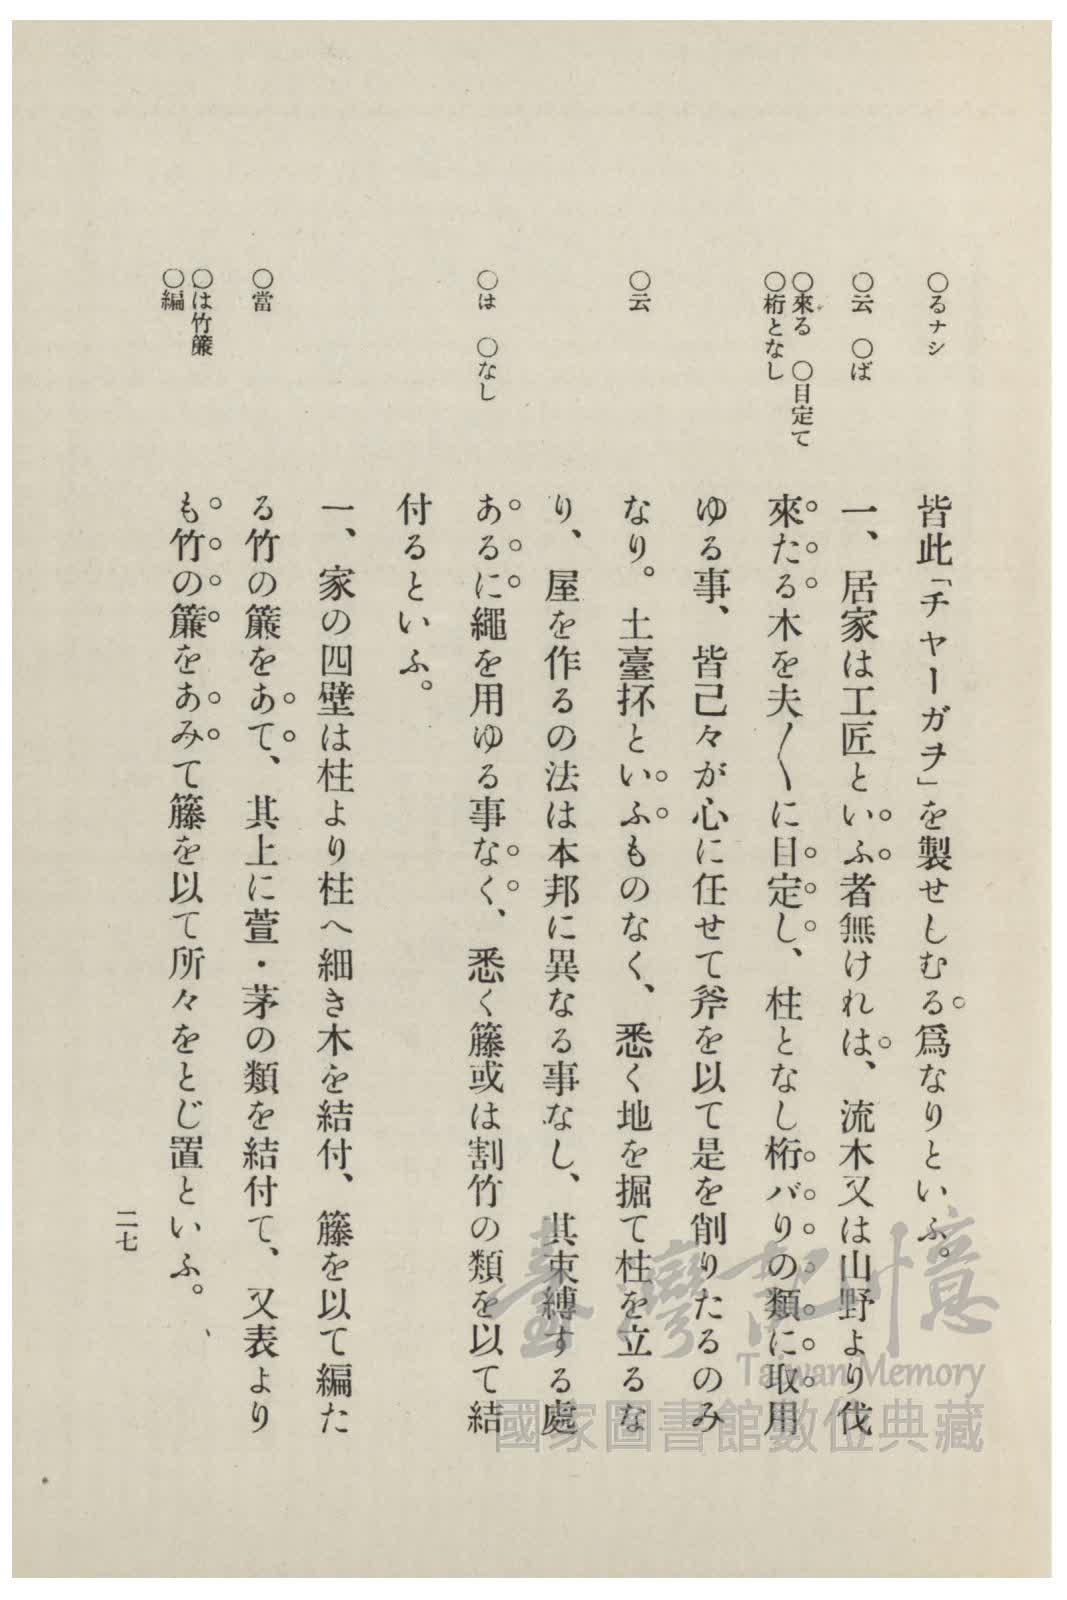 ○るナシ
○云　○ば
○來る　○目定て
○桁となし
○云
○は　○なし
○當
○は竹簾
○編
皆此「チヤーガヲ」を製せしむる爲なりといふ。
一、居家は工匠といふ者無けれは、流木又は山野より伐
來たる木を夫〱に目定し、柱となし桁バりの類に取用
ゆる事、皆己々が心に任せて斧を以て是を削りたるのみ
なり。土臺抔といふものなく、悉く地を掘て柱を立るな
り、屋を作るの法は本邦に異なる事なし、其束縛する處
あるに繩を用ゆる事なく、悉く籐或は割竹の類を以て結
付るといふ。
一、家の四壁は柱より柱へ細き木を結付、籐を以て編た
る竹の簾をあて、其上に萱・茅の類を結付て、又表より
も竹の簾をあみて籐を以て所々をとじ置といふ。
二七
臺灣記憶
Taiwan Memory
國家圖書館數位典藏